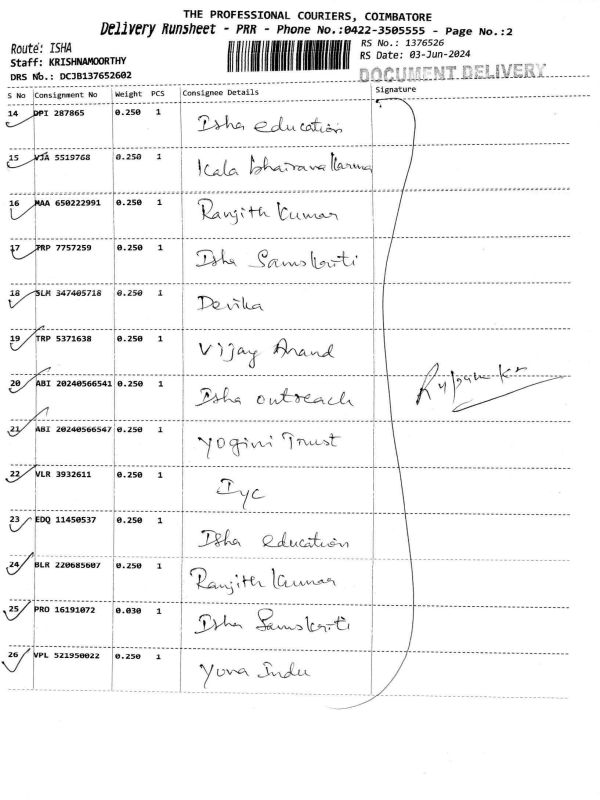 THE PROFESSIONAL COURIERS, COIMBATORE
Delivery Runsheet - PRR - Phone No.:0422-3505555 - Page No.:2
Route: ISHA
RS No.: 1376526
Staff: KRISHNAMOORTHY
RS Date: 03-Jun-2024
DRS No.: DCJB137652602
DOCUMENT DELIVERY
S No Consignment No Weight PCS Consignee Details Signature
14 DPI 287865 0.250 1 Isha education
15 VJA 5519768 0.250 1 Kala bhairava Karma
16 MAA 650222991 0.250 1 Ranjith Kumar
17 TRP 7757259 0.250 1 Isha Samskriti
18 SLM 347405718 0.250 1 Devika
19 TRP 5371638 0.250 1 Vijay Anand
20 ABI 20240566541 0.250 1 Isha outreach
21 ABI 20240566547 0.250 1 Yogini Trust
22 VLR 3932611 0.250 1 Iyc
23 EDQ 11450537 0.250 1 Isha education
24 BLR 220685607 0.250 1 Ranjith Kumar
25 PRO 16191072 0.030 1 Isha Samskriti
26 VPL 521950022 0.250 1